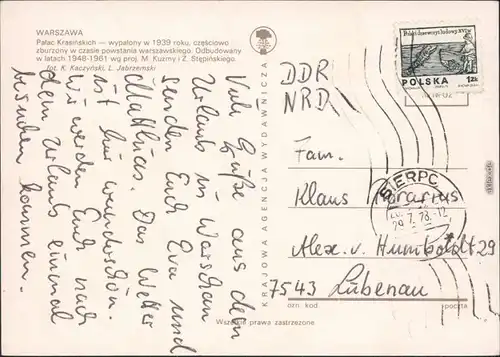 WARSZAWA
Pałac Krasińskich — wypalony w 1939 roku, częściowo
zburzony w czasie powstania warszawskiego. Odbudowany
w latach 1948-1961 wg proj. M. Kuzmy i Z. Stępińskiego.
fot. K. Kaczyński, L. Jabrzemski
Viele Grüße aus dem
Urlaub in Warschau
senden Euch Eva und
Matthias. Das Wetter
ist hier wunderschön.
Wir werden Euch nach
dem Urlaub einmal
besuchen kommen.
KRAJOWA AGENCJA WYDAWNICZA
POLSKA
1zł
SIERPC
29.7.78.-12
DDR
NRD
Fam.
Klaus
Alex. v. Humboldt 29
7543 Lübenau
ozn. kod
poczta
Wszelkie prawa zastrzeżone